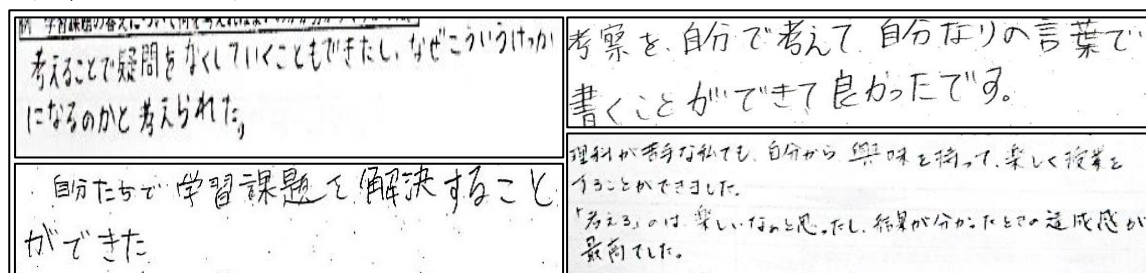 考えることで疑問をなくしていくこともできたし、なぜこういうけっか
になるのかと考えられた。
自分たちで学習課題を解決すること
ができた
考察を、自分で考えて、自分なりの言葉で
書くことができて良かったです。
理科が苦手な私でも、自分から興味を持って、楽しく授業を
することができました。
「考える」のは、楽しいなぁと思ったし、結果が分かったときの達成感が
最高でした。